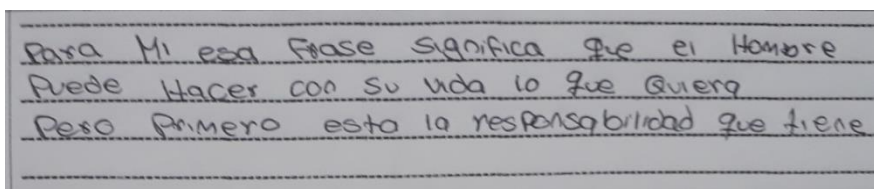 Para Mi esa Frase significa que el Hombre
Puede Hacer con su vida lo que Quiera
Pero Primero esta la responsabilidad que tiene